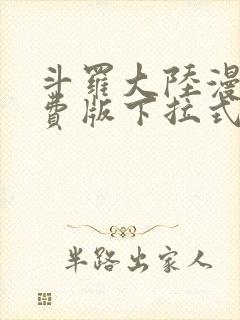 斗羅大陸漫
費版下拉式
半路出家人